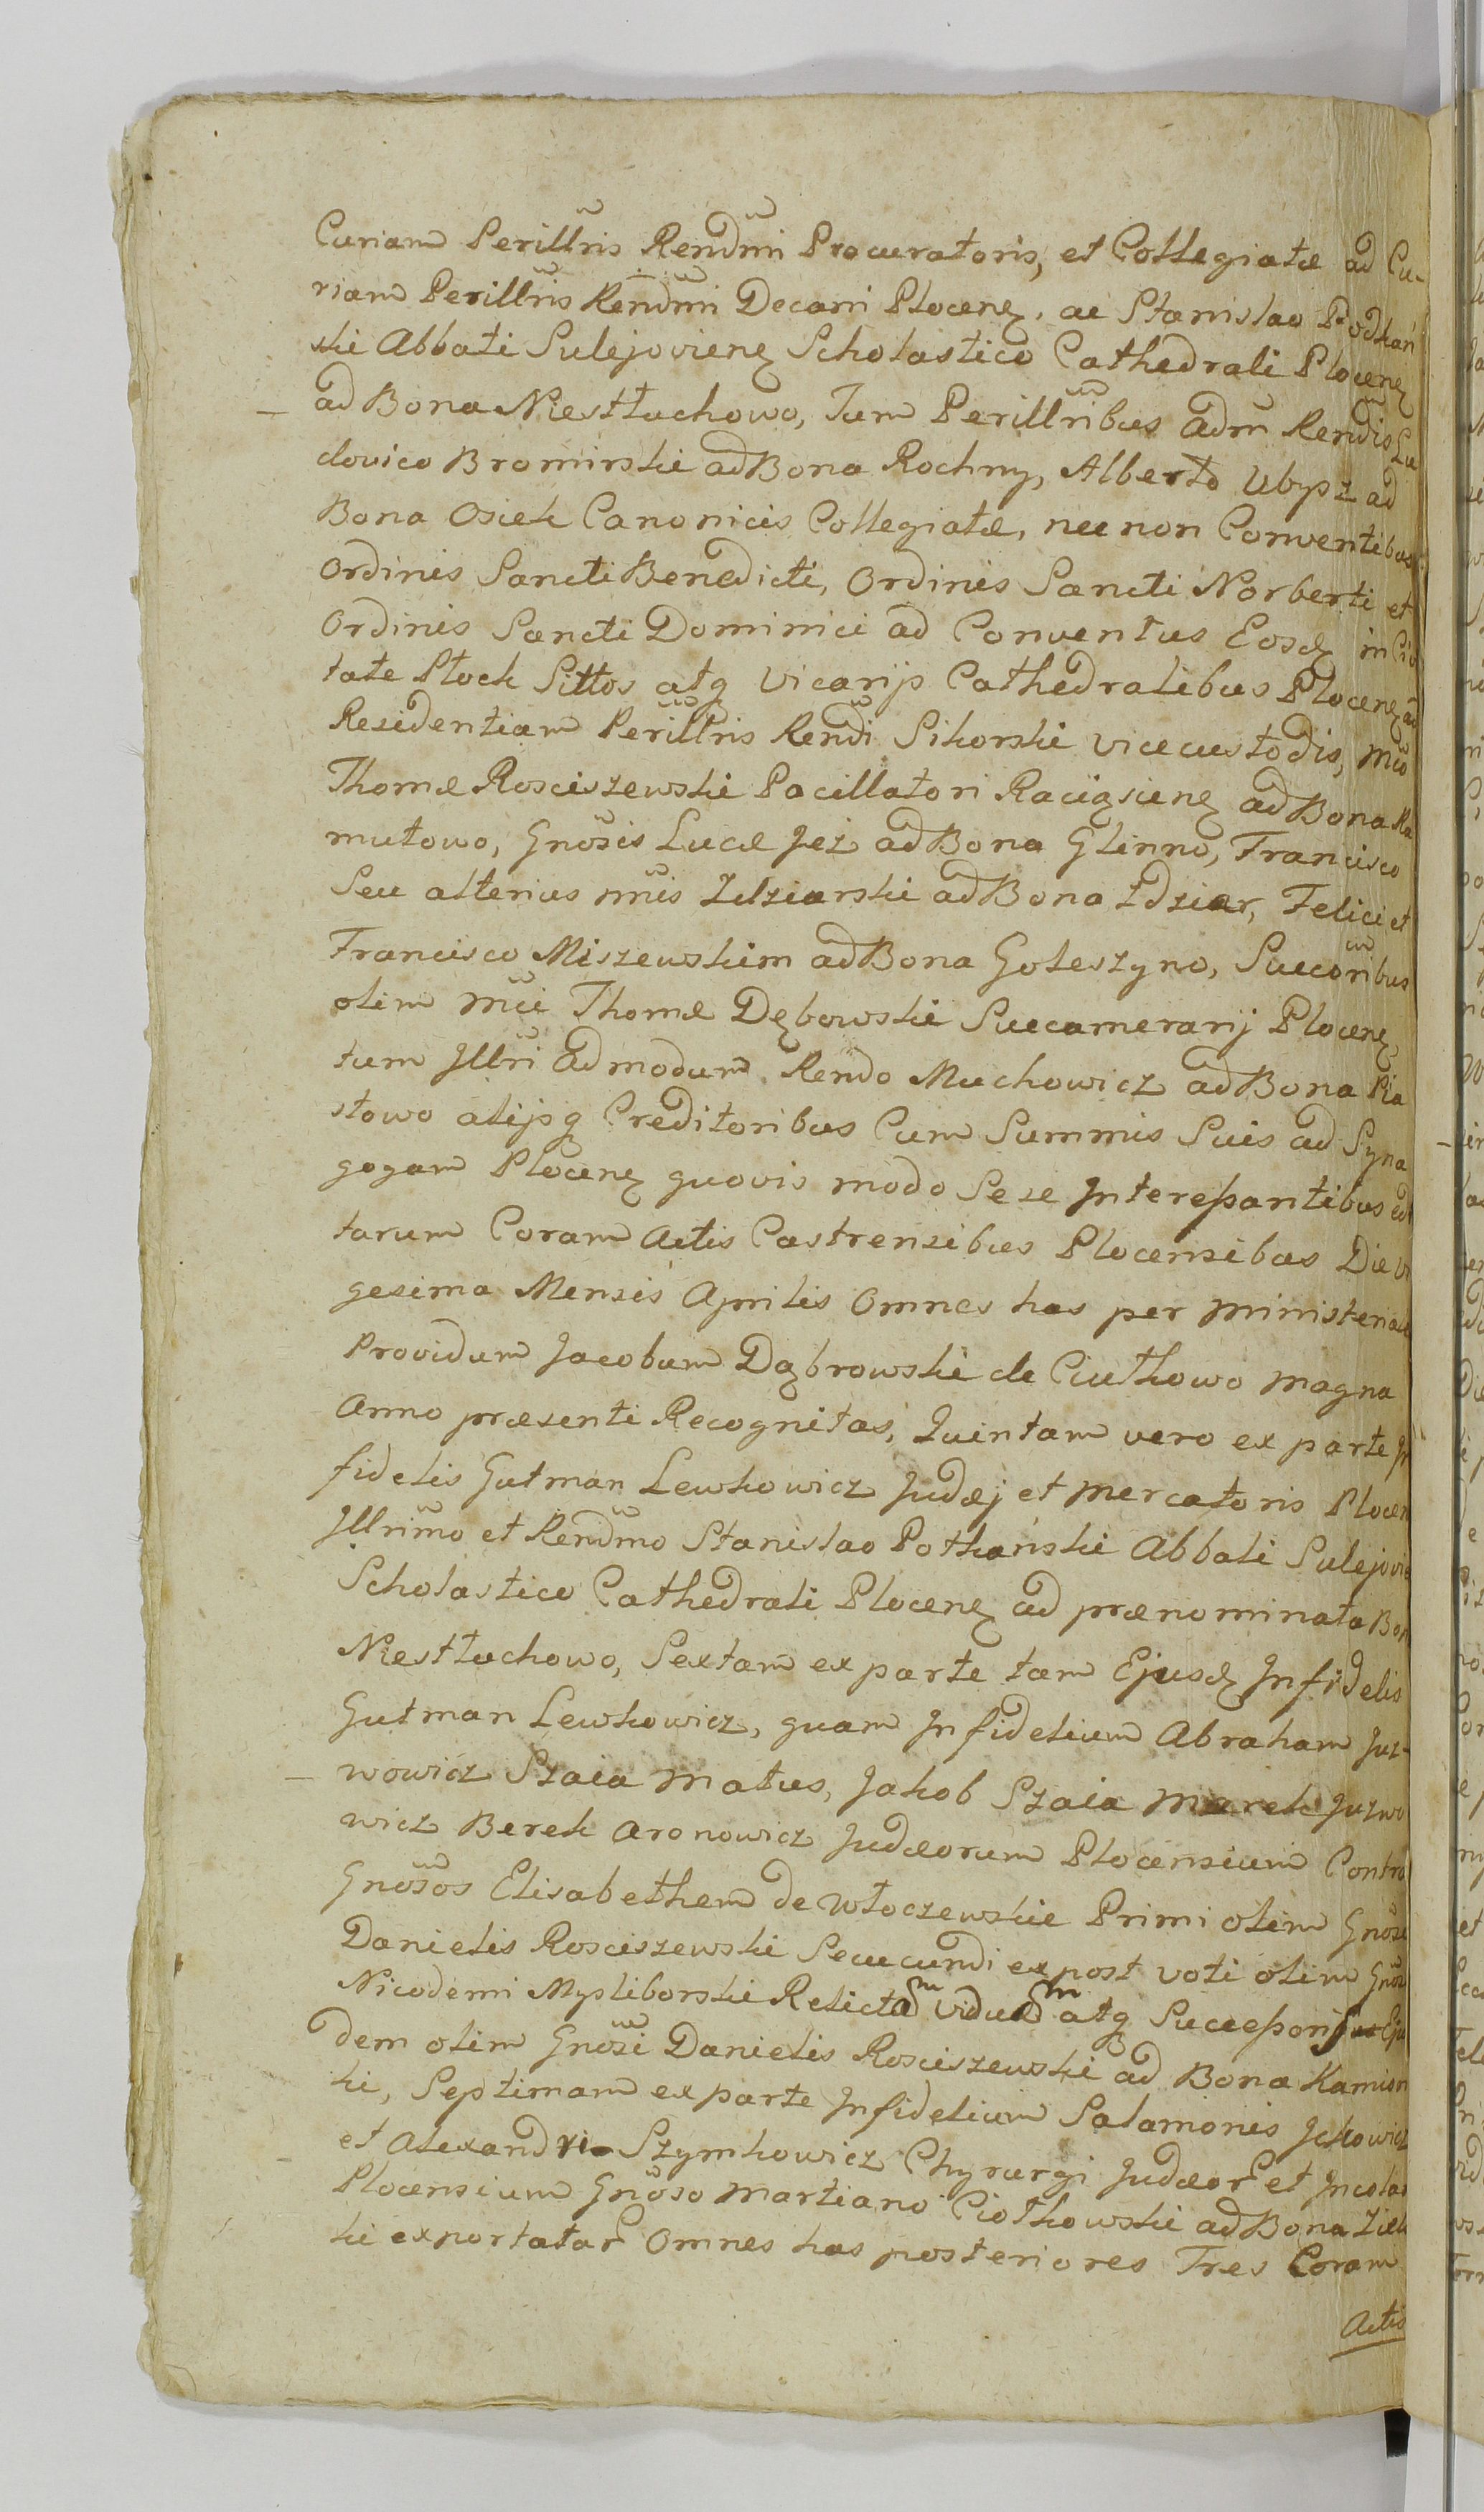 Curiam Perillris Rendmi Procuratoris, et Collegiatæ ad Cu-
riam Perillris Rendmi Decani Plocen, ac Stanislao Podkań
ski Abbati Sulejovien Scholastico Cathedrali Plocen
ad Bona Niestłuchowo, Tum Perillribus Adm Rendis Lu
dovico Bromirski ad Bona Rochny, Alberto Ubysz ad
Bona Osiek Canonicis Collegiatæ, nec non Conventibus
Ordinis Sancti Benedicti, Ordinis Sancti Norberti et
Ordinis Sancti Dominici ad Conventus Eosd in Civi
tate Płock Sittos atq Vicarijs Cathedralibus Plocen ad
Residentiam Perillris Rendi Sikorski Vicecustodis, Mco
Thomæ Rosciszewski Pocillatori Raciązien ad Bona Ra
mutowo, Gnosis Lucæ Jeż ad Bona Glinno, Francisco
Seu alterius nnis Zdziarski ad Bona Zdziar, Felici et
Francisco Miszewskim ad Bona Goleszyno, Succoribus
olim Mci Thomæ Dębowski Succamerarij Plocen
tum Illri Admodum Rendo Muchowicz ad Bona Pia
stowo alijsq Creditoribus Cum Summis Suis ad Syna
gogam Plocen quovis modo Sese Interessantibus edi
tarum Coram Actis Castrensibus Plocensibus Die Vi
gesima Mensis Aprilis Omnes has per Ministeriale
Providum Jacobum Dąbrowski de Ciutkowo Magna
Anno præsenti Recognitas, Quintam vero ex parte In
fidelis Gutman Lewkowicz Judæj et Mercatoris Plocen
Illrimo et Rendmo Stanislao Potkański Abbati Sulejovie
Scholastico Cathedrali Plocen ad prænominata Bon
Niestłuchowo, Sextam ex parte tam Ejusd Infidelis
Gutman Lewkowicz, quam Infidelium Abraham Juz-
wowicz Szaia Matus, Jakob Szaia Marek Juzwo
wicz Berek Aronowicz Judæorum Plocensium Contra
Gnosos Elisabetham de Włoczewskie Primi olim Gnosi
Danielis Rosciszewski Secucundi ex post voti olim Gnosi
Nicodemi Mysliborski Relictam Viduam atq Successori Eju
dem olim Gnosi Danielis Rosciszewski ad Bona Kamion
ki, Septimam ex parte Infidelium Salamonis Ickowicz
et Alexandri Szymkowicz Chyrurgi Judæor et Incolar
Plocensium Gnoso Martiano Ciotkowski ad Bona Ziel
ki exportatar Omnes has posteriores Tres Coram
Actis